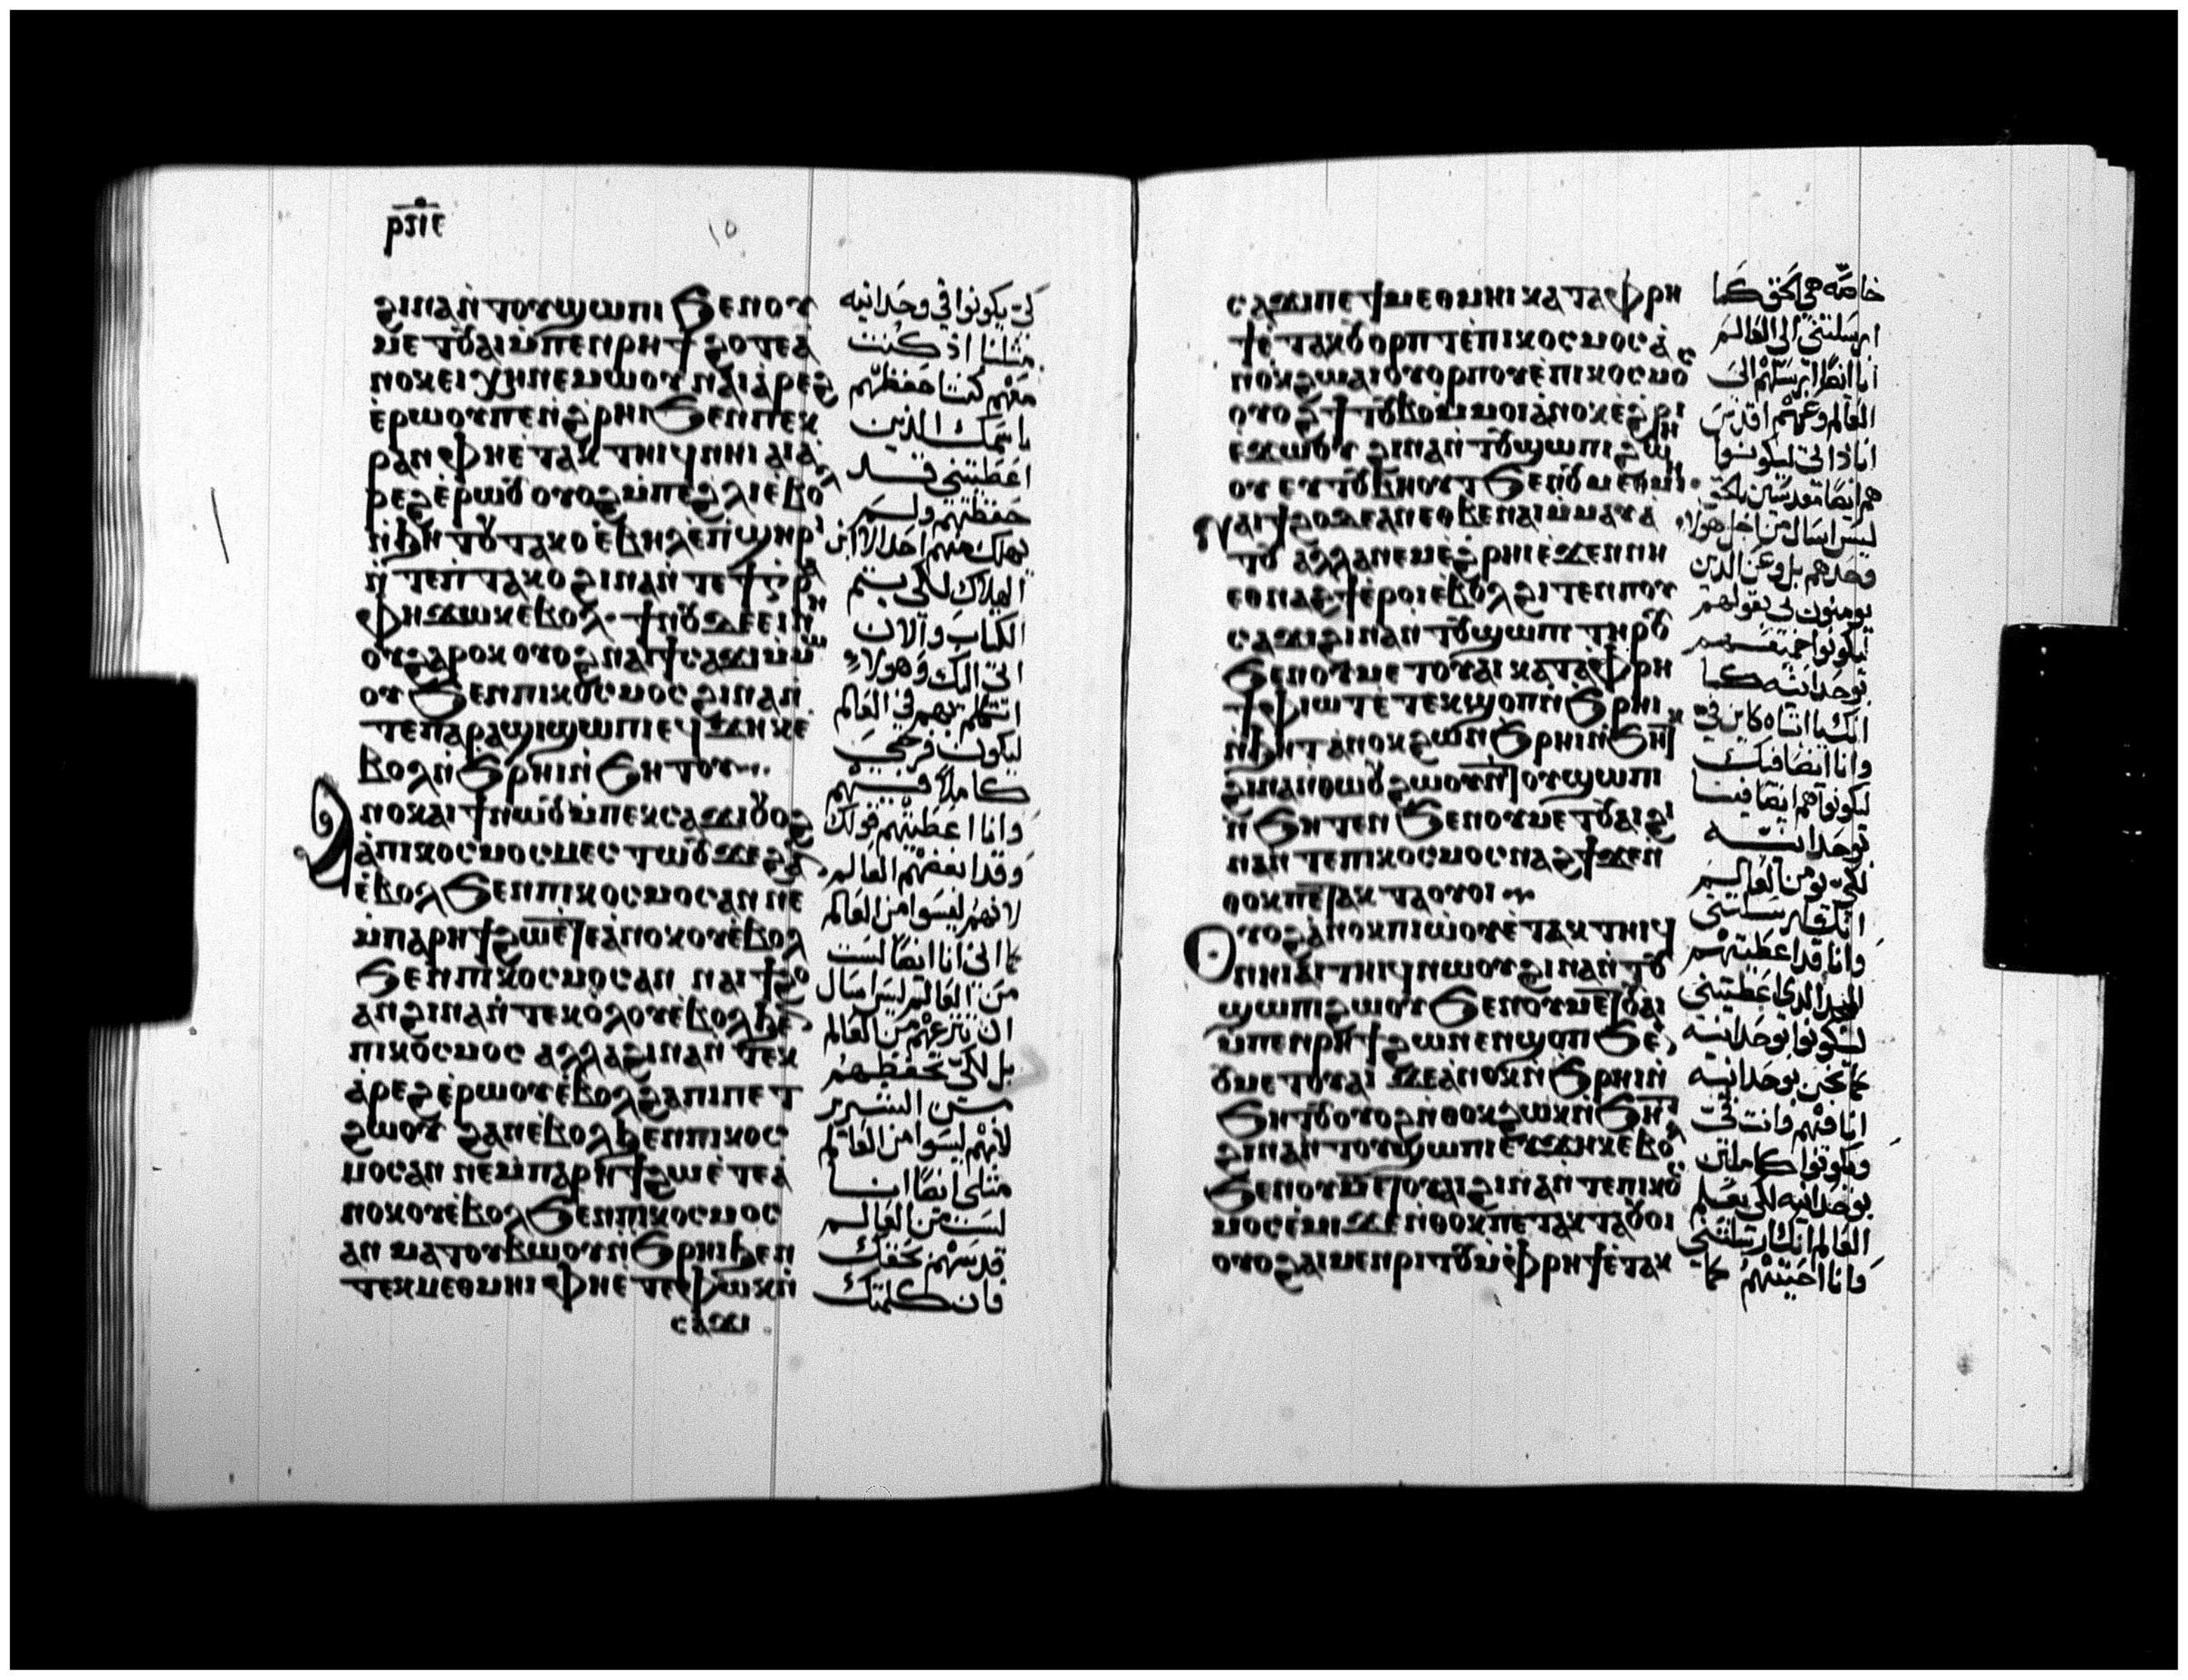 ⲣⲡⲉ
ϩⲓⲛⲁ ⲛ̀ⲧⲟⲩϣⲱⲡⲓ ϧⲉⲛⲟⲩ
ⲙⲉⲧⲟⲩⲁⲓ ⲙ̀ⲡⲉⲛⲣⲏϯ ϩⲟⲧⲉ ⲁ
ⲛⲟⲕ ⲉⲓⲭⲏ ⲛⲉⲙⲱⲟⲩ ⲛⲁⲓⲁ̀ⲣⲉϩ
ⲉ̀ⲣⲱⲟⲩ ⲡⲉ ⲛ̀ϩⲣⲏⲓ ϧⲉⲛ ⲡⲉⲕ
ⲣⲁⲛ ⲫⲏⲉ̀ⲧⲁⲕⲧⲏⲓϥ ⲛⲏⲓ ⲁⲓⲁ̀
ⲣⲉϩ ⲉ̀ⲣⲱⲟⲩ ⲟⲩⲟϩ ⲙ̀ⲡⲉ ϩⲗⲓ ⲉ̀ⲃⲟⲗ
ⲛ̀ϧⲏⲧⲟⲩ ⲧⲁⲕⲟ ⲉ̀ⲃⲏⲗ ⲉ̀ⲡϣⲏⲣⲓ
ⲛ̀ⲧⲉ ⲡ̀ⲧⲁⲕⲟ ϩⲓⲛⲁ ⲛ̀ⲧⲉ ϯⲅⲣⲁ
ⲫⲏ ϫⲱⲕ ⲉⲃⲟⲗ ϯⲛⲟⲩ ϫⲉ ⲉⲓⲛⲏ
ⲟⲩ ϩⲁⲣⲟⲕ ⲟⲩⲟϩ ⲛⲁⲓ ϯⲥⲁϫⲓ ⲙ̀ⲙⲱ
ⲟⲩ ϧⲉⲛ ⲡⲓⲕⲟⲥⲙⲟⲥ ϩⲓⲛⲁ ⲛ̀
ⲧⲉ ⲡⲁⲣⲁϣⲓ ϣⲱⲡⲓ ⲉϥϫⲏⲕ ⲉ
ⲃⲟⲗ ⲛ̀ϧⲣⲏⲓ ⲛ̀ϧⲏⲧⲟⲩ
ⲁⲛⲟⲕ ⲁⲓϯ ⲛⲱⲟⲩ ⲙ̀ⲡⲉⲕⲥⲁϫⲓ ⲟⲩⲟϩ
ⲁ̀ ⲡⲓⲕⲟⲥⲙⲟⲥ ⲙⲉⲥⲧⲱⲟⲩ ϫⲉ ϩⲁⲛ
ⲉ̀ⲃⲟⲗ ϧⲉⲛ ⲡⲓⲕⲟⲥⲙⲟⲥ ⲁⲛ ⲛⲉ
ⲙ̀ⲡⲁⲣⲏϯ ϩⲱ ⲉ̀ⲧⲉ ⲁ̀ⲛⲟⲕ ⲟⲩⲉ̀ⲃⲟⲗ
ϧⲉⲛ ⲡⲓⲕⲟⲥⲙⲟⲥ ⲁⲛ ⲛⲁⲓϯϩⲟ
ⲁⲛ ϩⲓⲛⲁ ⲛ̀ⲧⲉⲕⲟ̀ⲗⲟⲩ ⲉ̀ⲃⲟⲗ ϧⲉⲛ
ⲡⲓⲕⲟⲥⲙⲟⲥ ⲁⲗⲗⲁ ϩⲓⲛⲁ ⲛ̀ⲧⲉⲕ
ⲁ̀ⲣⲉϩ ⲉ̀ⲣⲱⲟⲩ ⲉ̀ⲃⲟⲗ ϩⲁ ⲡⲓⲡⲉⲧ
ϩⲱⲟⲩ ϩⲁⲛⲉ̀ⲃⲟⲗ ϧⲉⲛ ⲡⲓⲕⲟⲥ
ⲙⲟⲥ ⲁⲛ ⲛⲉ ⲙ̀ⲡⲁⲣⲏϯ ϩⲱ ⲉ̀ⲧⲉ ⲁ̀
ⲛⲟⲕ ⲟⲩⲉ̀ⲃⲟⲗ ϧⲉⲛ ⲡⲓⲕⲟⲥⲙⲟⲥ
ⲁⲛ ⲙⲁⲧⲟⲩⲃⲱⲟⲩ ⲛ̀ϧⲣⲏⲓ ϧⲉⲛ
ⲧⲉⲕⲙⲉⲑⲙⲏⲓ ⲫⲏⲉ̀ⲧⲉ ⲫⲱⲕ ⲛ̀
ⲥⲁϫⲓ
كي يكونوا في وحدانيه
مثلنا اذ كنت
معهم كنت احفظهم
باسمك الذين
اعطيتني قد
حفظتهم ولم
يهلك منهم احد الا ابن
الهلاك لكي يتم
الكتاب والان
اتي اليك وهولاء
اتكلم بهم في العالم
ليكون فرحي
كاملا فيهم
وانا اعطيتهم قولك
وقد ابغضهم العالم
لانهم ليسوا من العالم
كما اني انا ايضا لست
من العالم ليس اسال
ان تنزعهم من العالم
بل لكي تحفظهم
من الشرير
لانهم ليسوا من العالم
مثلي ايضا انا
لست من العالم
قدسهم بحقك
فان كلمتك
ⲥⲁϫⲓ ⲡⲉ ϯⲙⲉⲑⲙⲏⲓ ⲕⲁⲧⲁ ⲫⲣⲏ
ϯ ⲉ̀ⲧⲁⲕⲟⲩⲟⲣⲡⲧ ⲉ̀ⲡⲓⲕⲟⲥⲙⲟⲥ ⲁ̀
ⲛⲟⲕ ϩⲱ ⲁⲓⲟⲩⲟⲣⲡⲟⲩ ⲉ̀ⲡⲓⲕⲟⲥⲙⲟⲥ
ⲟⲩⲟϩ ϯⲧⲟⲩⲃⲟ ⲙ̀ⲙⲟⲓ ⲁⲛⲟⲕ ⲉ̀ϩⲣⲏⲓ
ⲉϫⲱⲟⲩ ϩⲓⲛⲁ ⲛ̀ⲧⲟⲩϣⲱⲡⲓ ϩⲱ
ⲟⲩ ⲉⲩⲧⲟⲩⲃⲏⲟⲩⲧ ϧⲉⲛ ⲟⲩⲙⲉⲑⲙⲏⲓ
ⲛⲁⲓϯϩⲟ ϫⲉ ⲁⲛ ⲉⲑⲃⲉ ⲛⲁⲓ ⲙ̀ⲙⲁⲩⲁ
ⲧⲟⲩ ⲁⲗⲗⲁ ⲛⲉⲙ ⲉ̀ϩⲣⲏⲓ ⲉ̀ϫⲉⲛ ⲛⲏ
ⲉⲑⲛⲁϩϯ ⲉ̀ⲣⲟⲓ ⲉ̀ⲃⲟⲗ ϩⲓⲧⲉⲛ ⲡⲟⲩ
ⲥⲁϫⲓ ϩⲓⲛⲁ ⲛ̀ⲧⲟⲩϣⲱⲡⲓ ⲧⲏⲣⲟⲩ
ϧⲉⲛ ⲟⲩⲙⲉⲧⲟⲩⲁⲓ ⲕⲁⲧⲁ ⲫⲣⲏ
ϯ ⲫⲓⲱⲧ ⲉ̀ⲧⲉⲕϣⲟⲡ ⲛ̀ϧⲣⲏⲓ
ⲛ̀ϧⲏⲧ ⲁⲛⲟⲕ ϩⲱ ⲛ̀ϧⲣⲏⲓ ⲛ̀ϧⲏⲧⲕ
ϩⲓⲛⲁ ⲛⲑⲱⲟⲩ ϩⲱⲟⲩ ⲛ̀ⲧⲟⲩϣⲱⲡⲓ
ⲛ̀ϧⲏⲧⲉⲛ ϧⲉⲛ ⲟⲩⲙⲉⲧⲟⲩⲁⲓ ϩⲓ
ⲛⲁ ⲛ̀ⲧⲉ ⲡⲓⲕⲟⲥⲙⲟⲥ ⲛⲁϩϯ ϫⲉ ⲛ̀
ⲑⲟⲕ ⲡⲉⲧⲁⲕⲧⲁⲟⲩⲟⲓ
ⲟⲩⲟϩ ⲁ̀ⲛⲟⲕ ⲡⲓⲱ̀ⲟⲩ ⲉ̀ⲧⲁⲕⲧⲏⲓϥ
ⲛⲏⲓ ⲁⲓⲧⲏⲓϥ ⲛⲱⲟⲩ ϩⲓⲛⲁ ⲛ̀ⲧⲟⲩ
ϣⲱⲡⲓ ϩⲱⲟⲩ ϧⲉⲛ ⲟⲩⲙⲉⲧⲟⲩⲁⲓ
ⲙ̀ⲡⲉⲛⲣⲏϯ ϩⲱⲛ ⲉⲛϣⲟⲡ ϧⲉⲛ
ⲟⲩⲙⲉⲧⲟⲩⲁⲓ ϫⲉ ⲁ̀ⲛⲟⲕ ⲛ̀ϧⲣⲏⲓ ⲛ̀
ϧⲏⲧⲟⲩ ⲟⲩⲟϩ ⲛ̀ⲑⲟⲕ ϩⲱⲕ ⲛ̀ϧⲏⲧ
ϩⲓⲛⲁ ⲛ̀ⲧⲟⲩϣⲱⲡⲓ ⲉⲩϫⲏⲕ ⲉ̀ⲃⲟⲗ
ϧⲉⲛ ⲟⲩⲙⲉⲧⲟⲩⲁⲓ ϩⲓⲛⲁ ⲛ̀ⲧⲉ ⲡⲓⲕⲟⲥ
ⲙⲟⲥ ⲉ̀ⲙⲓ ϫⲉ ⲛ̀ⲑⲟⲕ ⲡⲉⲧⲁⲕⲧⲁⲟⲩⲟⲓ
ⲟⲩⲟϩ ⲁⲓⲙⲉⲛⲣⲓⲧⲟⲩ ⲙ̀ⲫⲣⲏϯ ⲉ̀ⲧⲁⲕ
خاصه هي الحق كما
ارسلتني الى العالم
انا ايضا ارسلتهم الى
العالم وعنهم اقدس
انا ذاتي ليكونوا
هم ايضا مقدسين بالحق
ليس اسال من اجل هولاء
وحدهم بل وعن الذين
يومنون بي بقولهم
ليكونوا جميعهم
بوحدانيه كما
انك يا ابتاه كاين في
وانا ايضا فيك
ليكونوا هم ايضا فينا
بوحدانيه
لكي يومن العالم
انك ارسلتني
وانا قد اعطيتهم
المجد الذي اعطيتني
ليكونوا بوحدانيه
كما نحن بوحدانيه
انا فيهم وانت في
ويكونوا كاملين
بوحدانيه لكي يعلم
العالم انك ارسلتني
وانا احببتهم كما